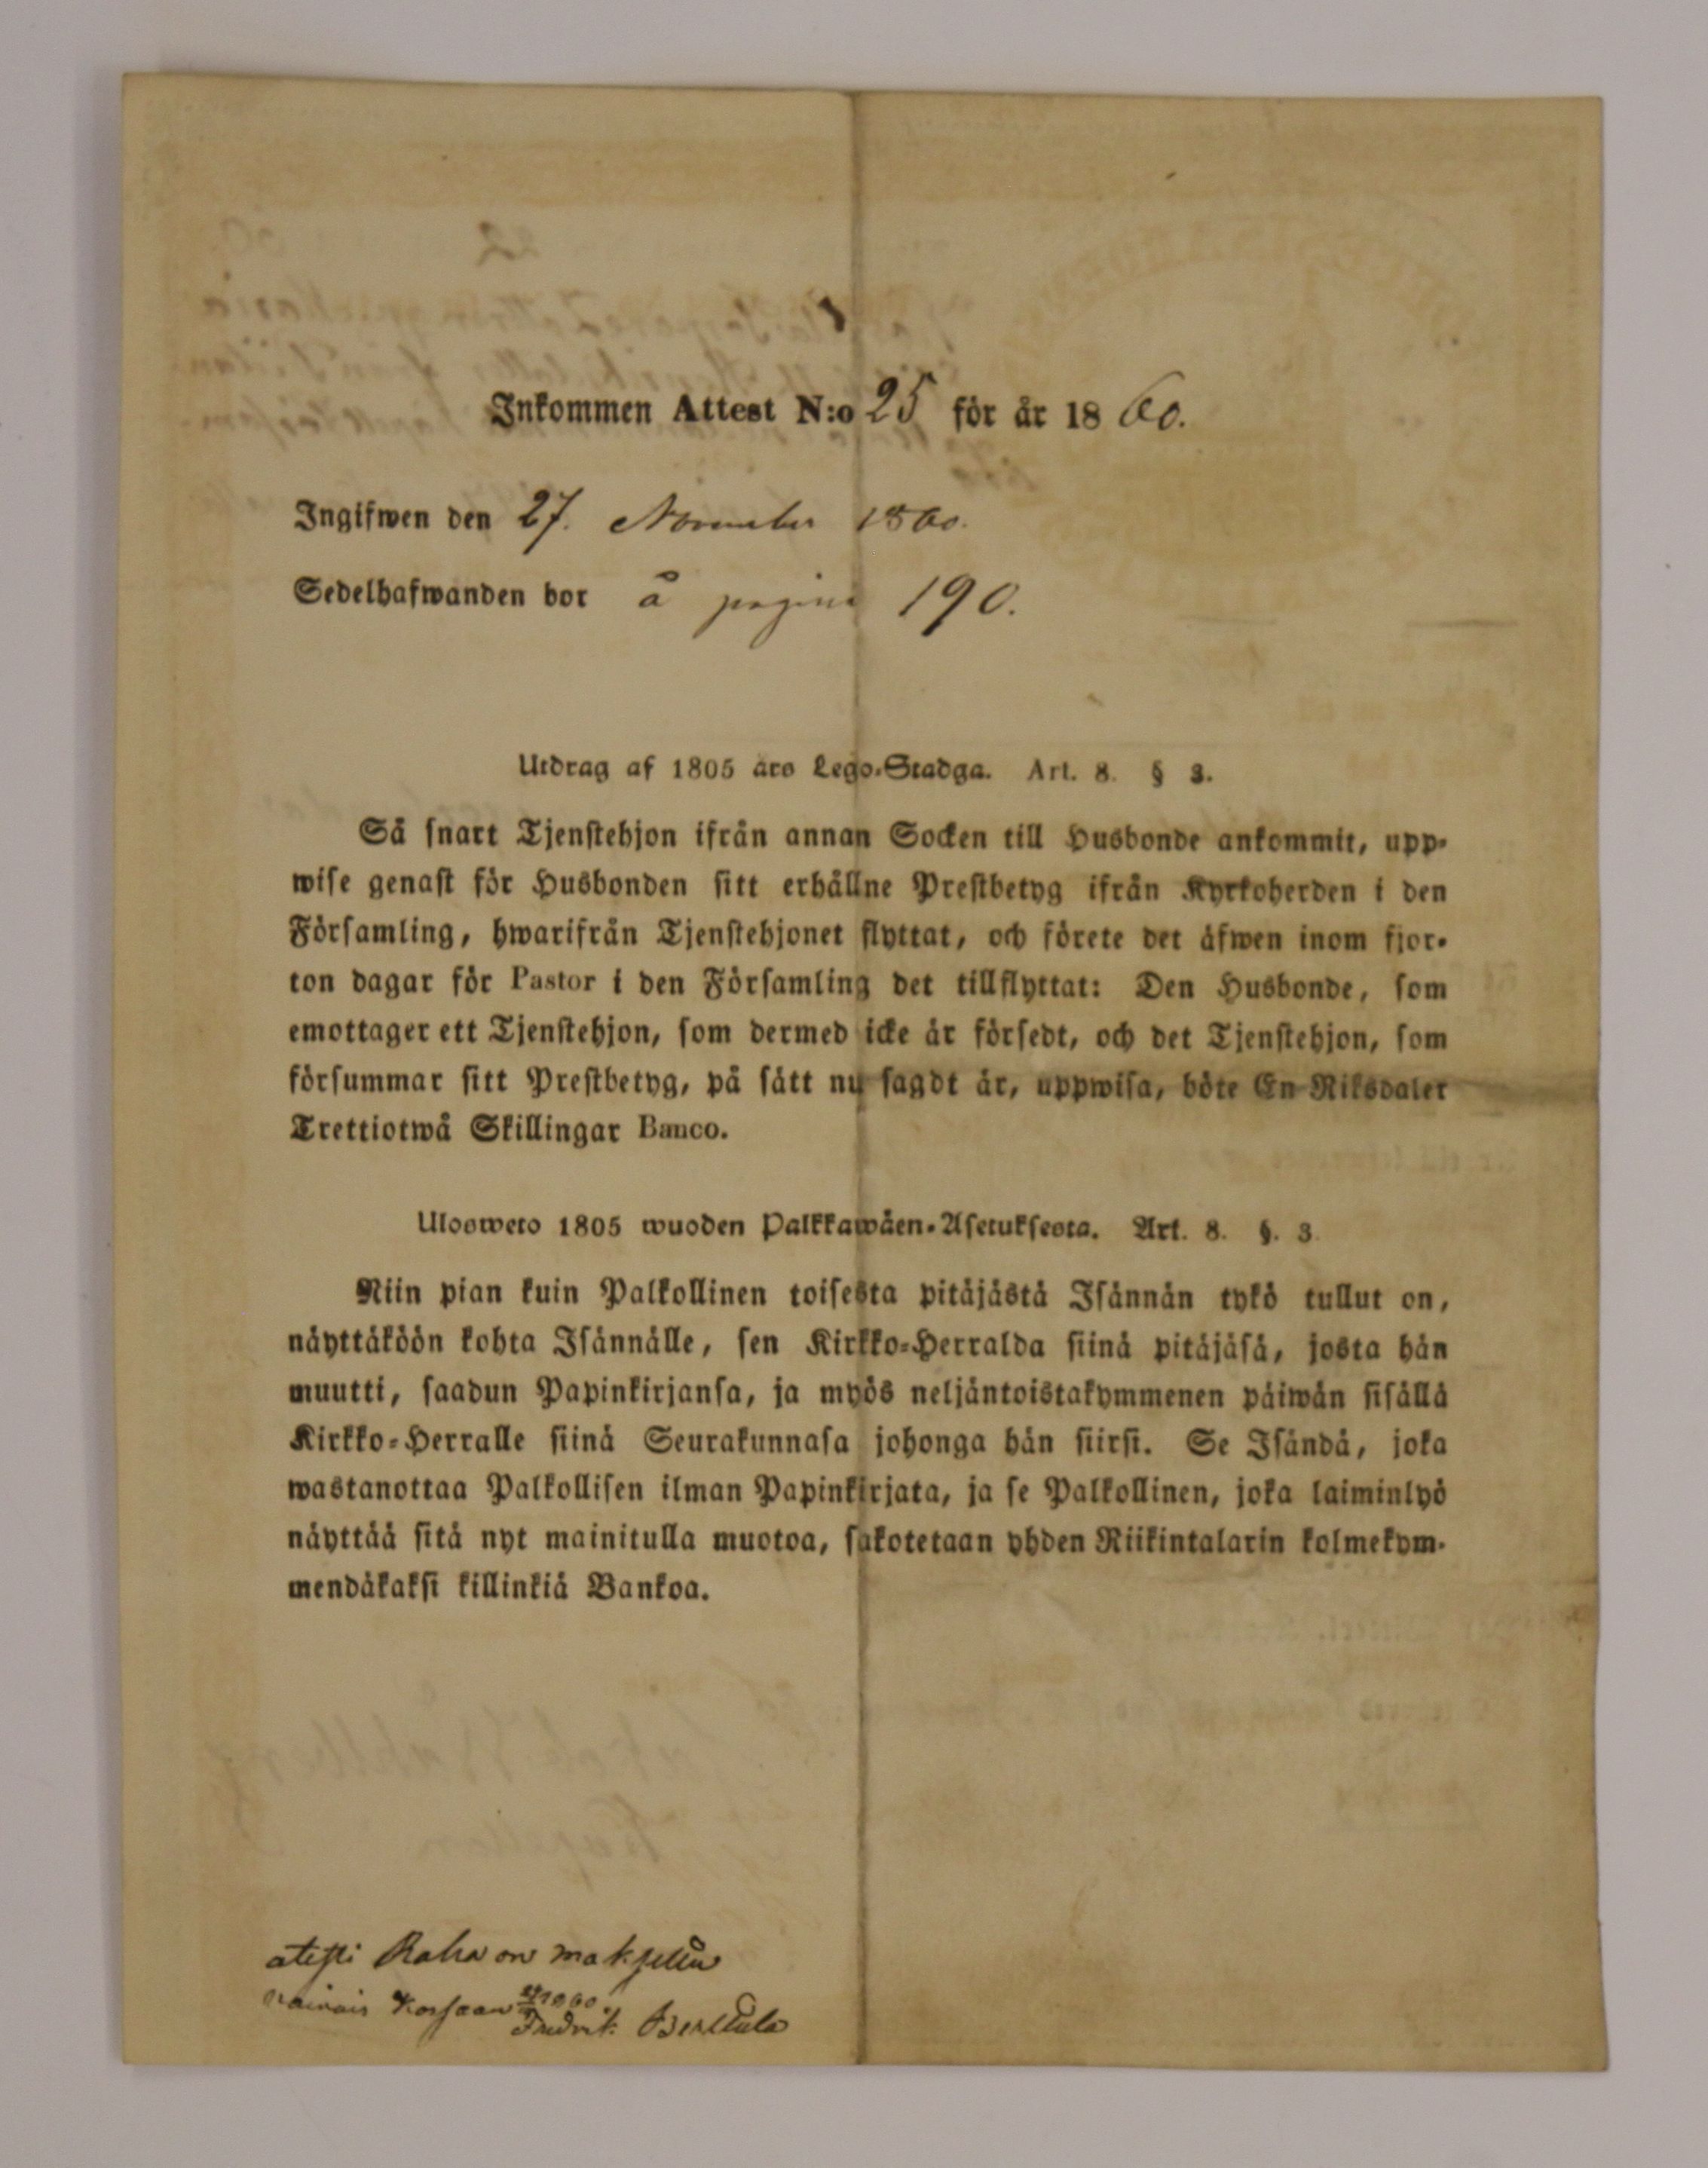 Inkommen Attest N:o 25 för år 1860.
Ingifwen den 27. November 1860.
Sedelhafwanden bor å pagina 190.
Utdrag af 1805 års Lego-Stadga. Art. 8. § 3.
Så snart Tjenstehjon ifrån annan Socken till Husbonde ankommit, upp-
wise genast för Husbonden sitt erhållne Prestbetyg ifrån Kyrkoherden i den
Församling, hwarifrån Tjenstehjonet flyttat, och förete det äfwen inom fjor-
ton dagar för Pastor i den Församling det tillflyttat: Den Husbonde, som
emottager ett Tjenstehjon, som dermed icke är försedt, och det Tjenstehjon, som
försummar sitt Prestbetyg, på sätt nu sagdt är, uppwisa, böte En Riksdaler
Trettiotwå Skillingar Banco.
Ulosweto 1805 wuoden Palkkawäen-Asetuksesta. Art. 8. §. 3
Niin pian kuin Palkollinen toisesta pitäjästä Isännän tykö tullut on,
näyttäköön kohta Isännälle, sen Kirkko-Herralda siinä pitäjäsä, josta hän
muutti, saadun Papinkirjansa, ja myös neljäntoistakymmenen päiwän sisällä
Kirkko-Herralle siinä Seurakunnasa johonga hän siirsi. Se Isändä, joka
wastanottaa Palkollisen ilman Papinkirjata, ja se Palkollinen, joka laiminlyö
näyttää sitä nyt mainitulla muotoa, sakotetaan yhden Riikintalarin kolmekym-
mendäkaksi killinkiä Bankoa.
atesti Raha on maksettu
Fredrik Berttula